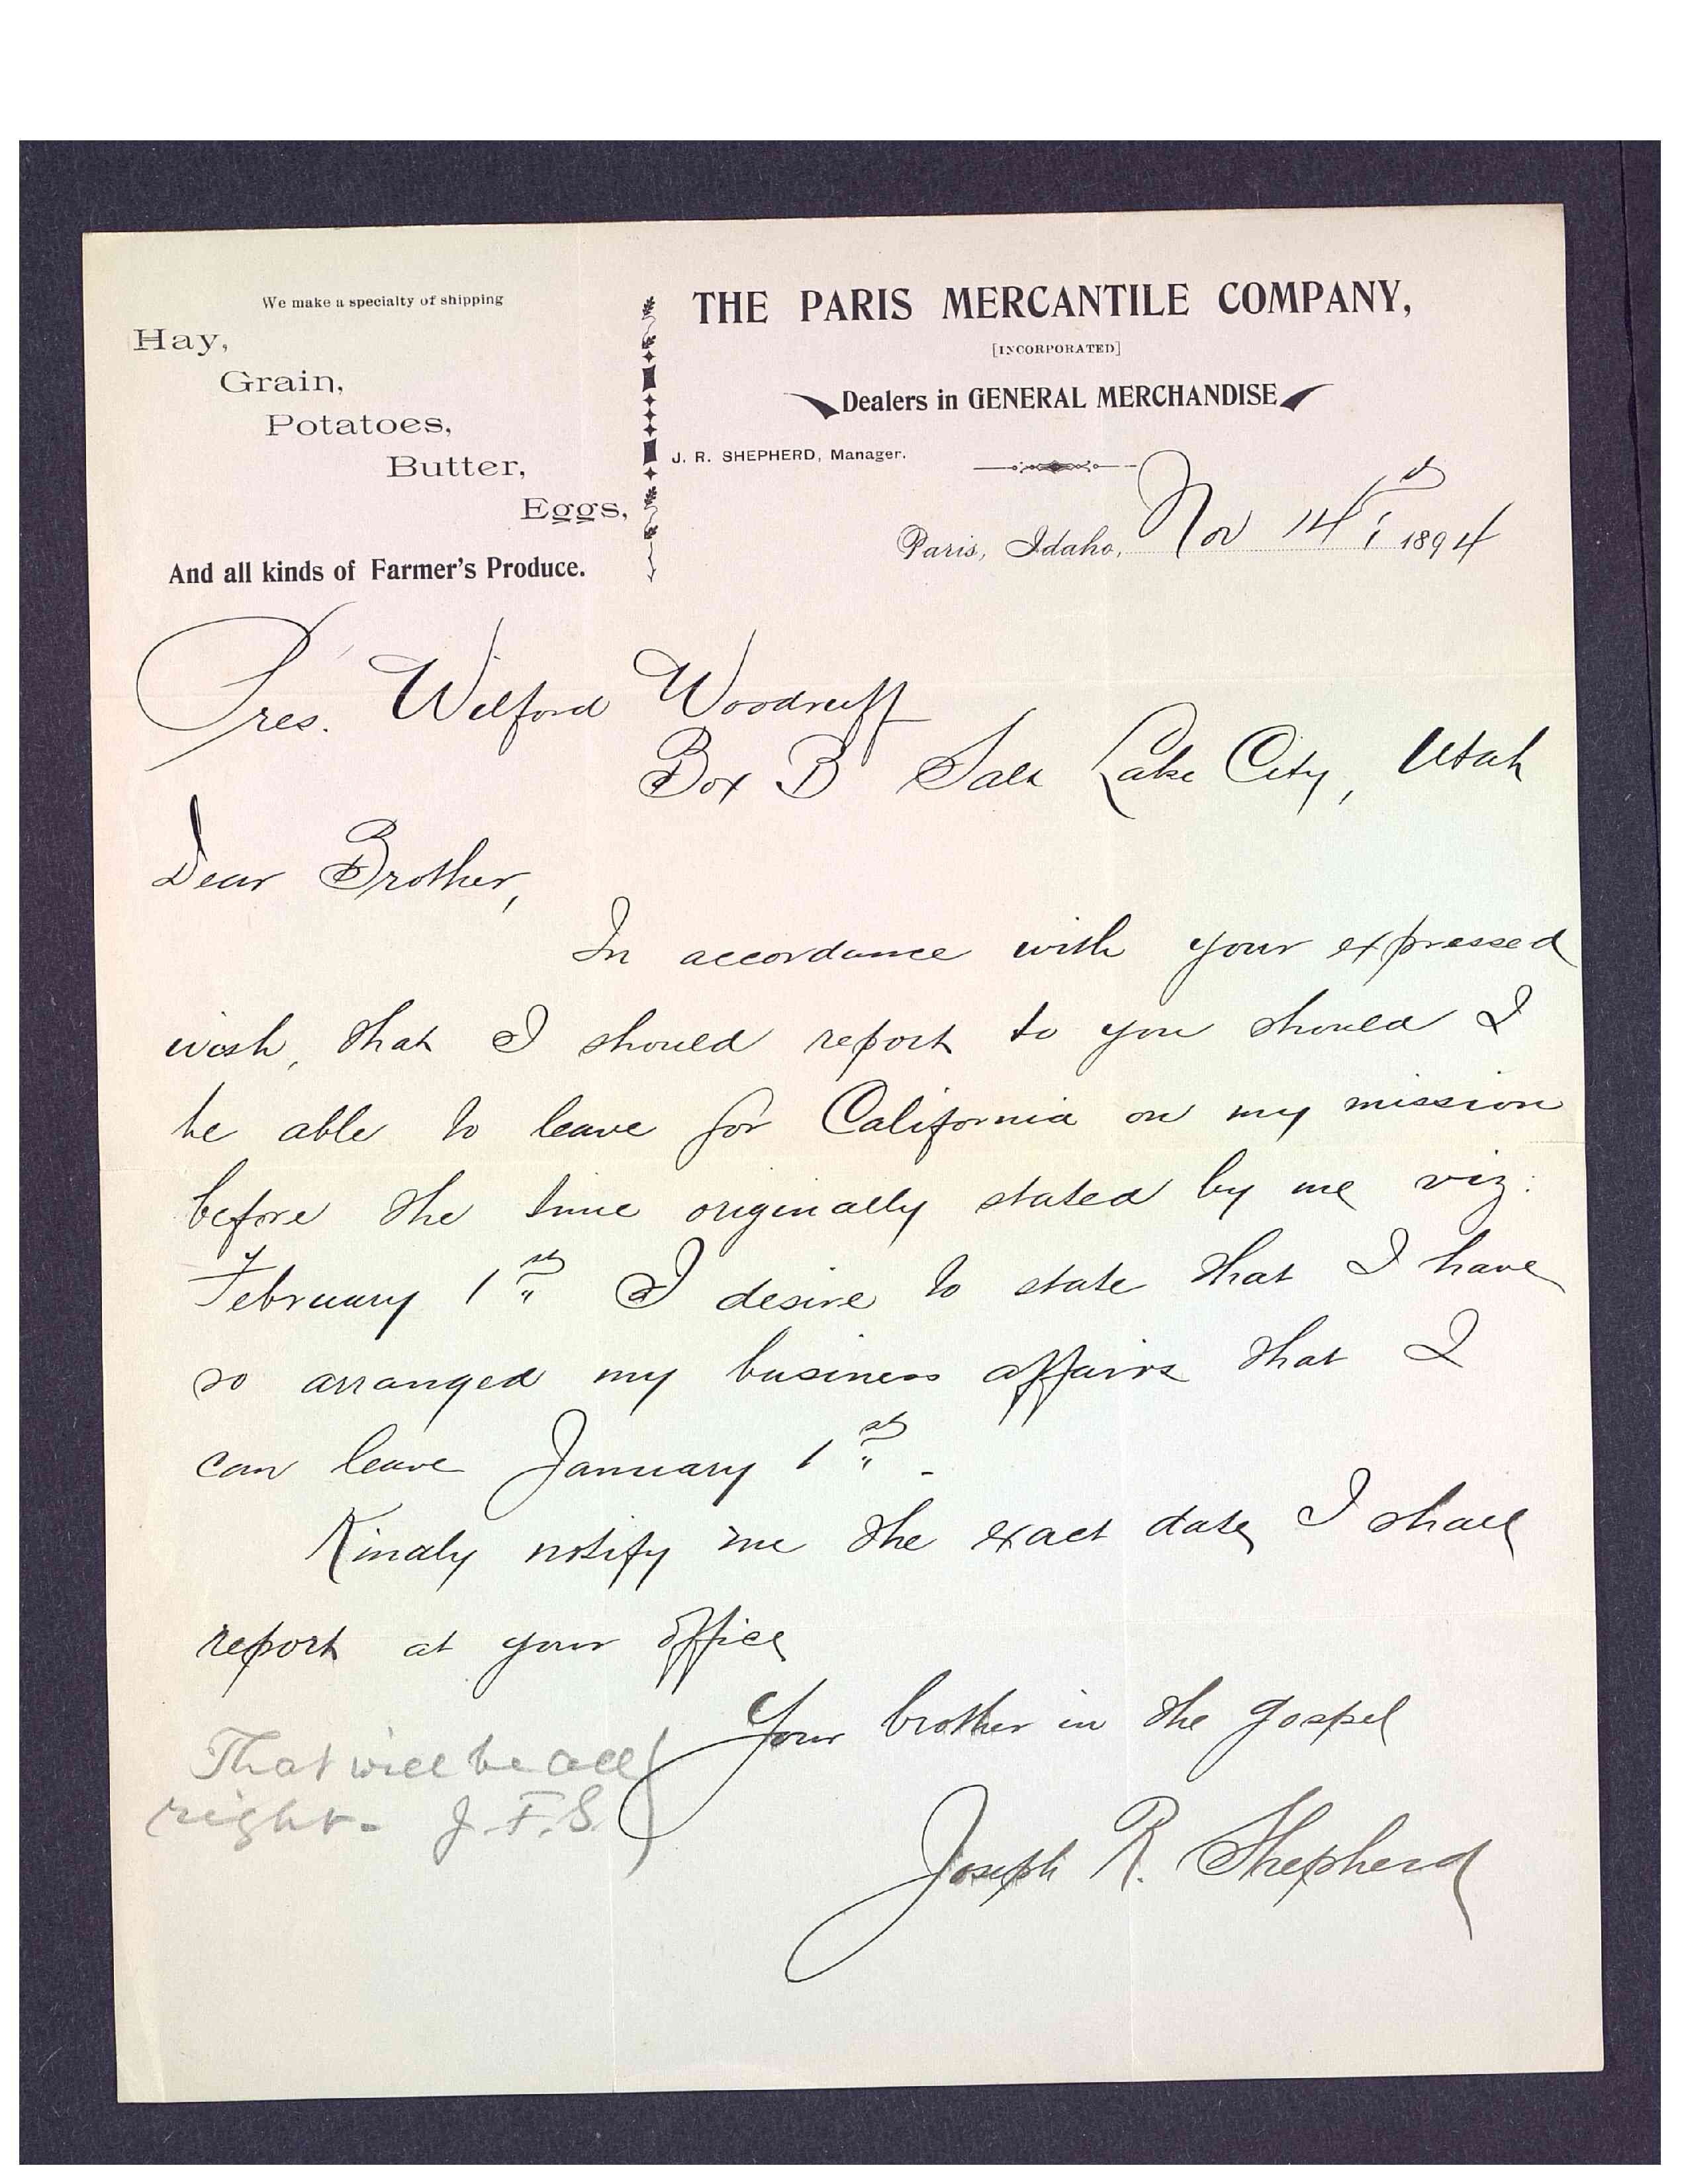 We make a specialty of shipping
Hay,
Grain,
Potatoes,
Butter,
Eggs,
And all kinds of Farmer's Produce.
THE PARIS MERCANTILE COMPANY,
[INCORPORATED]
Dealers in GENERAL MERCHANDISE
J. R. SHEPHERD, Manager.
Paris, Idaho, Nov 14th, 1894
Pres. Wilford Woodruff
Box B Salt Lake City, Utah
Dear Brother,
In accordance with your expressed
wish, that I should report to you should I
be able to leave for California on my mission
before the time originally stated by me viz:
February 1st I desire to state that I have
so arranged my business affairs that I
can leave January 1st -
Kindly notify me the exact date I shall
report at your office
Your brother in the gospel
Joseph R. Shepherd
That will be all
right. J. F. S.